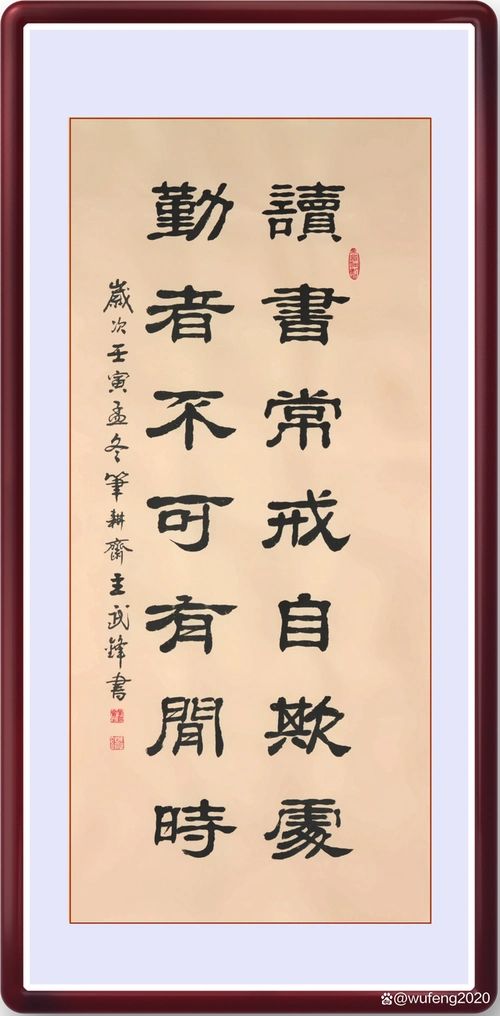 讀書常戒自欺處
勤者不可有閒時
歲次壬寅孟冬筆耕齋主武鋒書
@wufeng2020